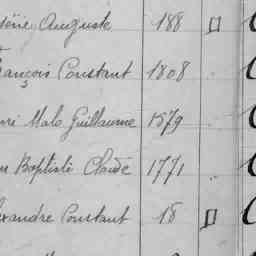 Auguste 188 ▯
François Constant 1808
Malo Guillaume 1579
Baptiste Claude 1771
Alexandre Constant 18 ▯